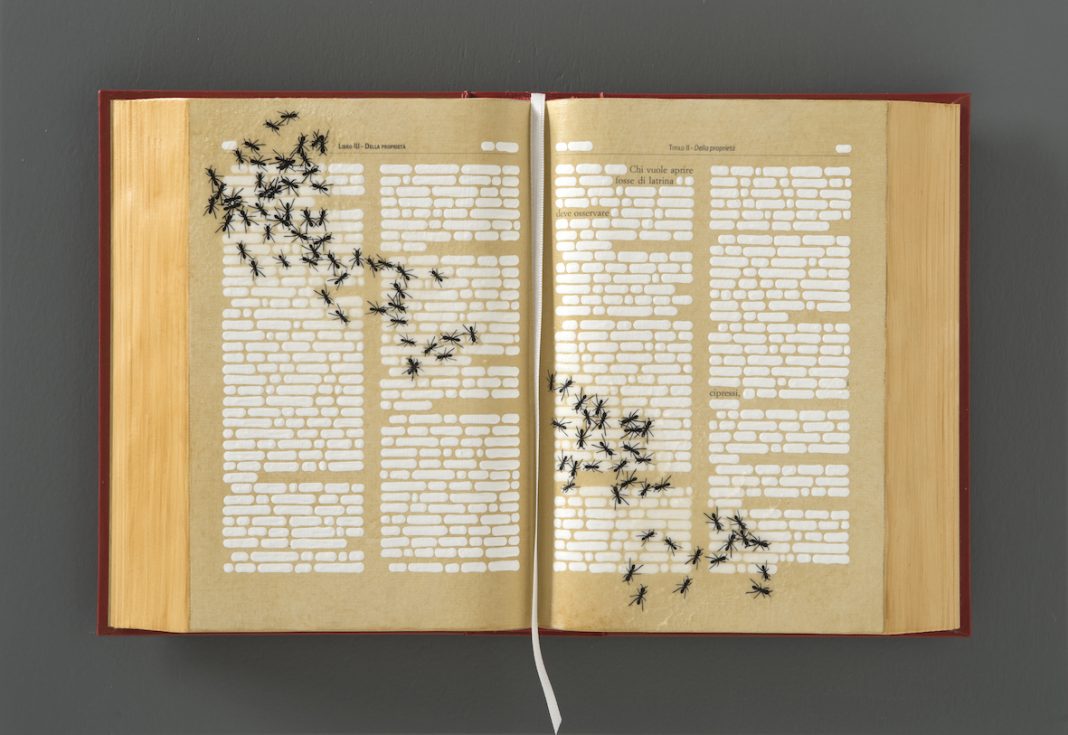 Libro III - Della proprietà
Titolo II - Della proprietà
Chi vuole aprire
fosse di latrina
deve osservare
cipressi,